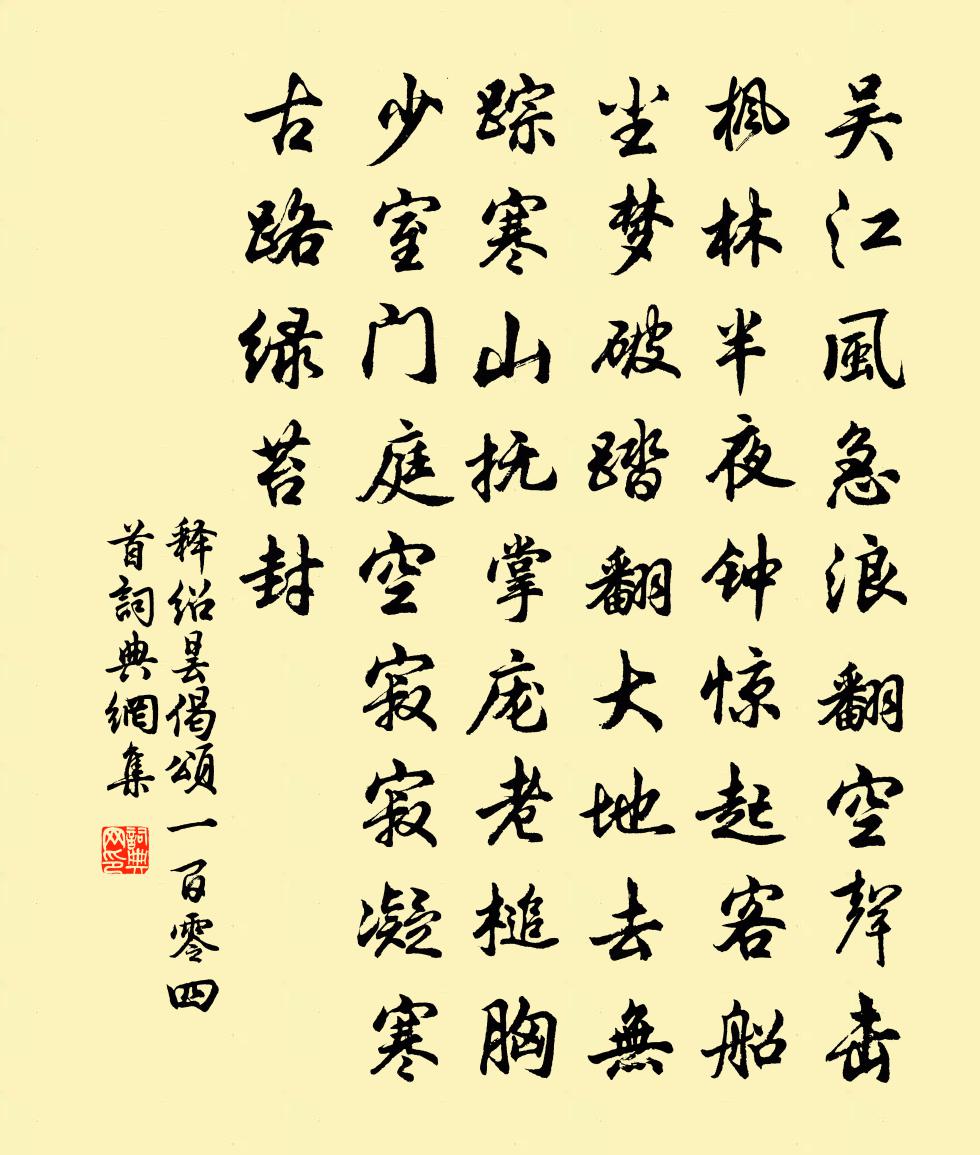 吴江風急浪翻空声击
枫林半夜钟惊起客船
尘梦破踏翻大地去無
踪寒山抚掌庞老槌胸
少室门庭空寂寂凝寒
古路绿苔封
释绍昙偈頌一百零四
首詞典網集
詞典
网印